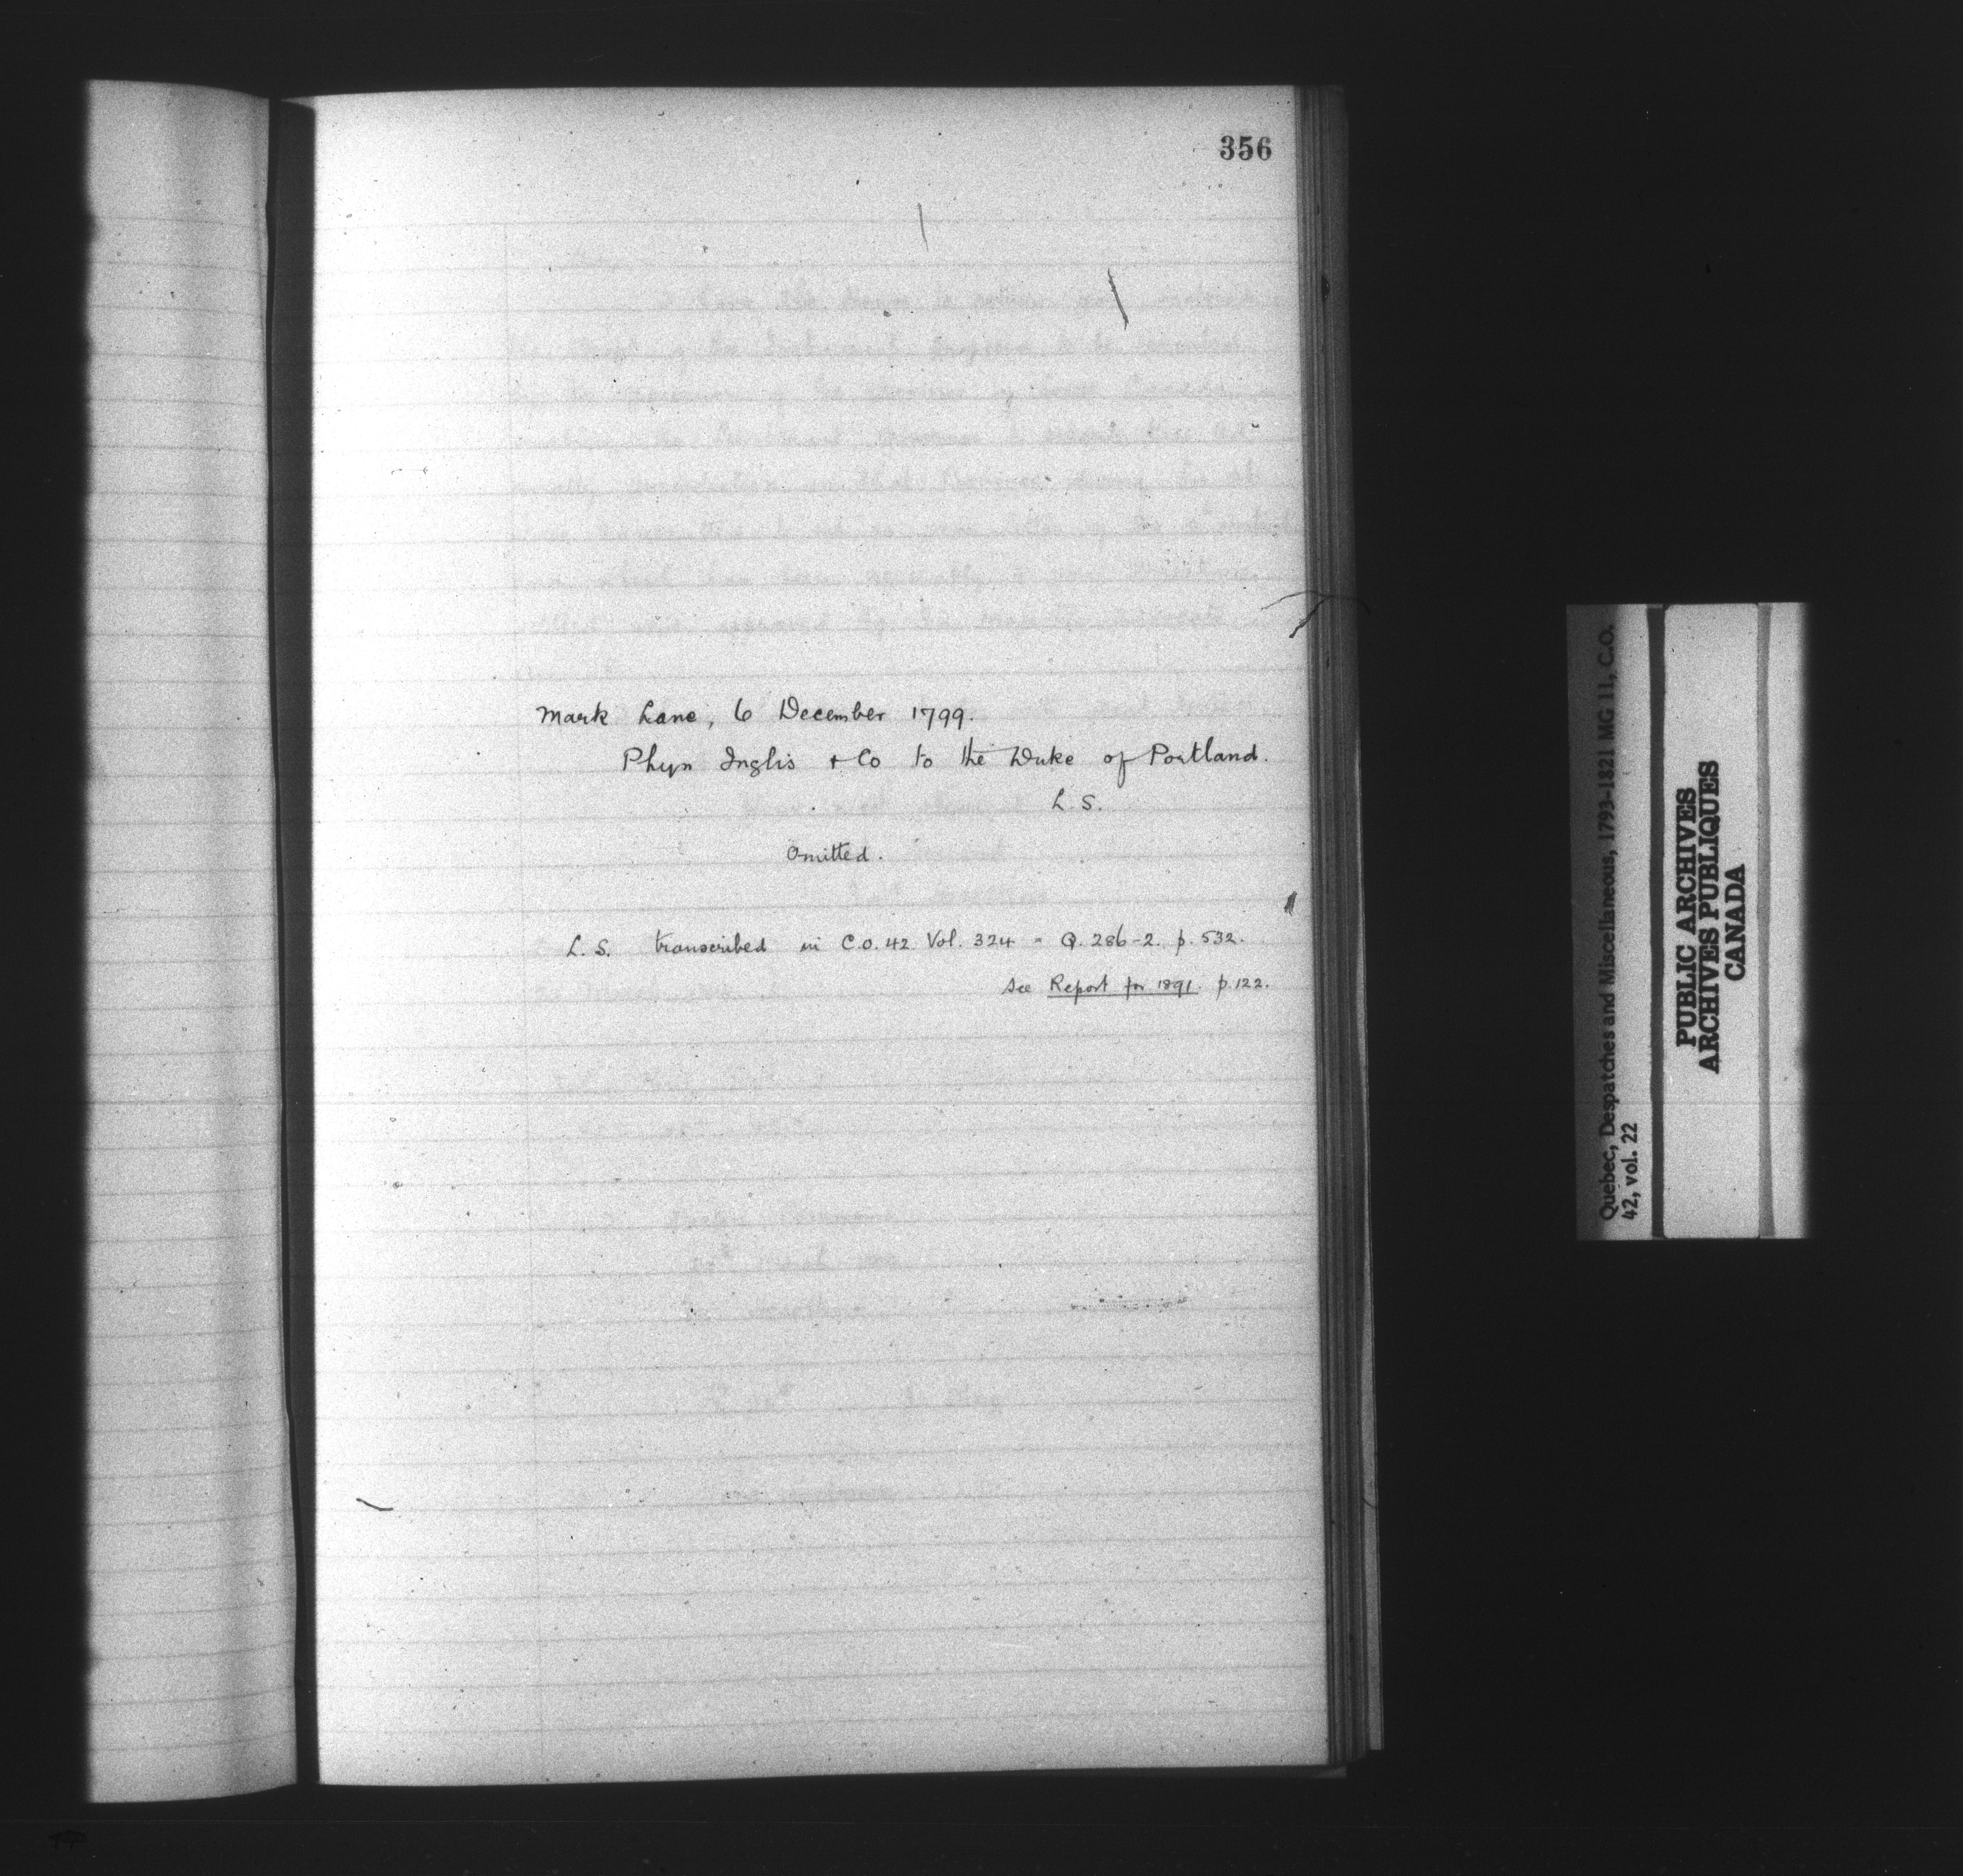 356
Mark Lane, 6 December 1799.
Phyn Inglis & Co to the Duke of Portland.
L. S.
Omitted.
L. S. transcribed in C.O. 42 Vol. 324 = Q. 286-2. p. 532.
See Report for 1891. p. 122.
Quebec, Despatches and Miscellaneous, 1793-1821 MG 11, C.O.
42, vol. 22
PUBLIC ARCHIVES
ARCHIVES PUBLIQUES
CANADA